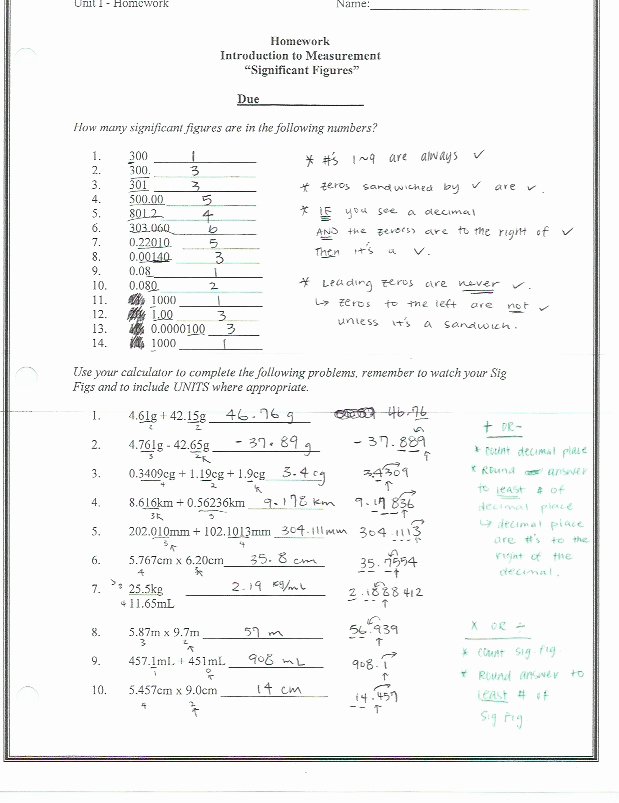 Unit 1 - Homework Name:
Homework
Introduction to Measurement
"Significant Figures"
Due
How many significant figures are in the following numbers?
1. 300 1
2. 300. 3
3. 301 3
4. 500.00 5
5. 801.2 4
6. 303.060 6
7. 0.22010 5
8. 0.00140 3
9. 0.08 1
10. 0.080 2
11. 1000 1
12. 1.00 3
13. 0.0000100 3
14. 1000 1
* #'s 1~9 are always ✓
* zeros sandwiched by ✓ are ✓.
* IF you see a decimal
AND the zero(s) are to the right of ✓
Then it's a ✓.
* Leading zeros are never ✓.
↳ zeros to the left are not ✓
unless it's a sandwich.
Use your calculator to complete the following problems, remember to watch your Sig
Figs and to include UNITS where appropriate.
1. 4.61g + 42.15g 46.76 g 46.76
2 2
2. 4.761g - 42.65g - 37.89 g - 37.889
3 2
3. 0.3409cg + 1.19cg + 1.9cg 3.4 cg 3.4309
4 2 1
4. 8.616km + 0.56236km 9.178 km 9.17836
3 5
5. 202.010mm + 102.1013mm 304.111mm 304.1113
3 4
6. 5.767cm x 6.20cm 35.8 cm 35.7554
4 3
7. 25.5kg 2.19 kg/mL 2.1888412
3
4 11.65mL
8. 5.87m x 9.7m 57 m 56.939
3 2
9. 457.1mL + 451mL 908 mL 908.1
1 0
10. 5.457cm x 9.0cm 14 cm 14.457
4 2
+ OR -
* Count decimal place
* Round answer
to least # of
decimal place
↳ decimal place
are #'s to the
right of the
decimal.
x OR ÷
* Count sig fig.
* Round answer to
least # of
Sig Fig